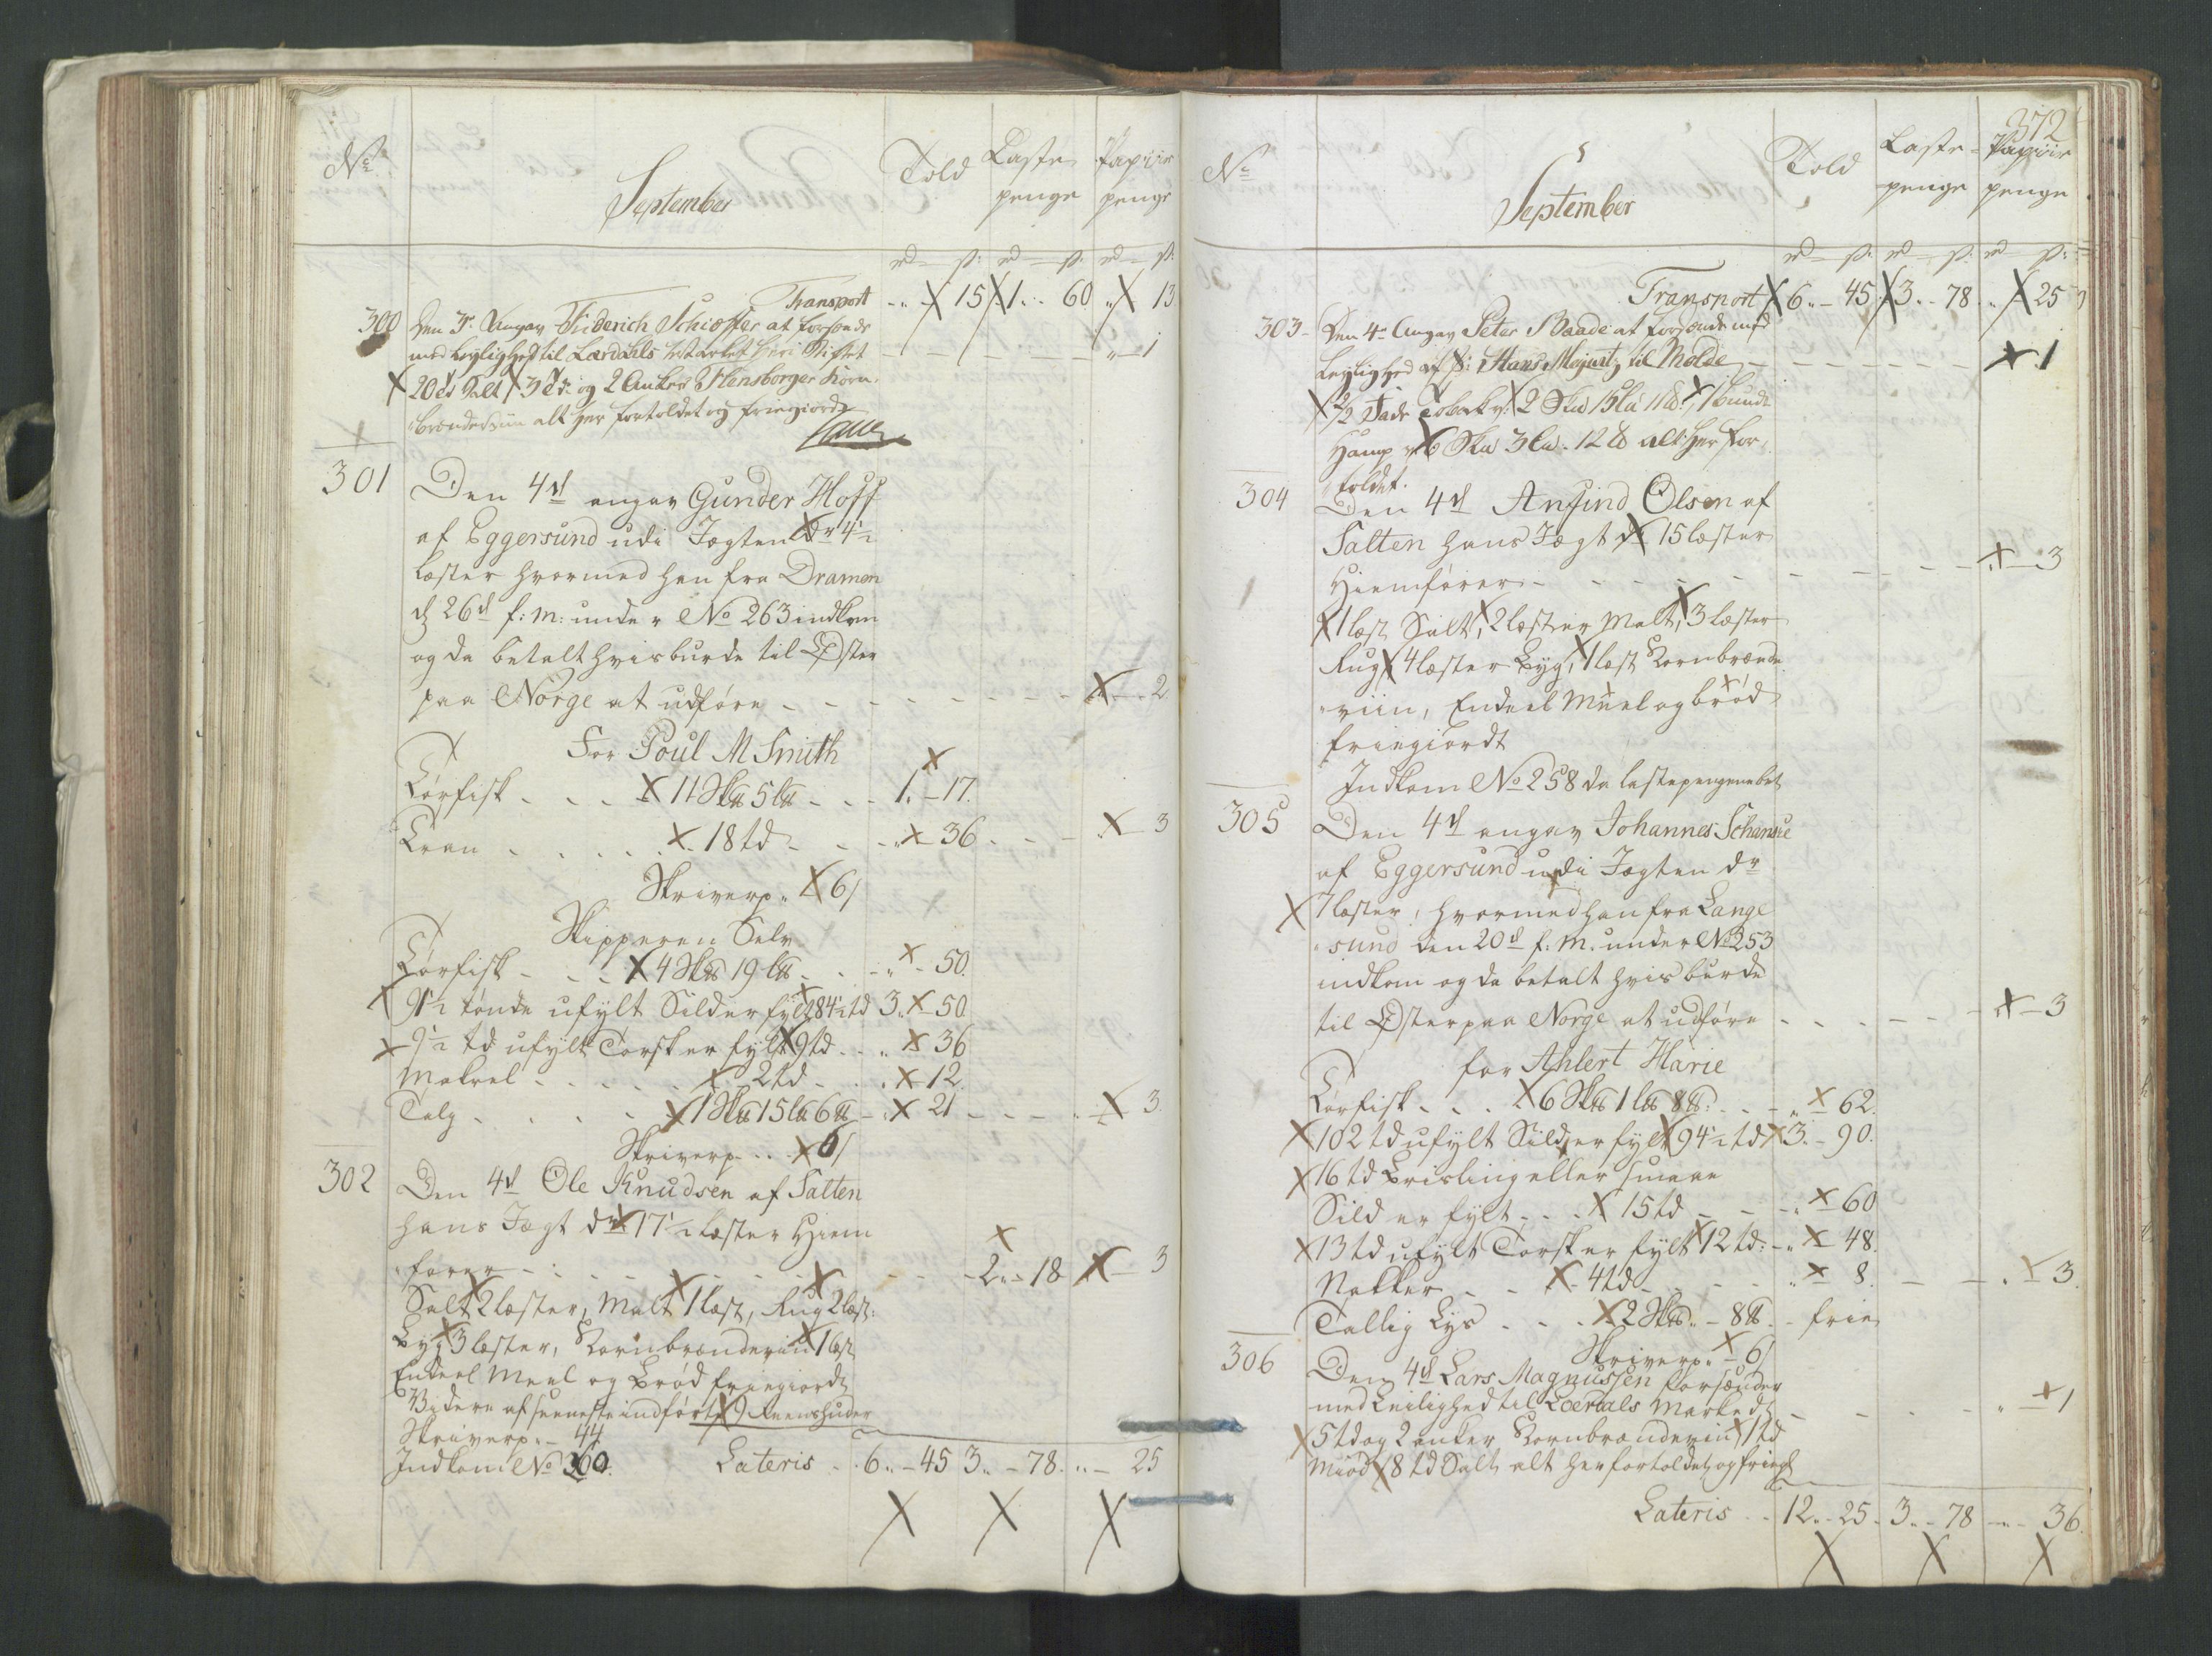 No
September
Told
Laste penge
Papiir penge
rd ß: rd ß: rd ß:
Transport " 15 1 " 60 " 13
300 Den 3e Angav Friderich Schiøtter at forsende
med leylighed til Lærdahls Market her i Stiftet - - " - 1
20 td Salt 3 td: og 2 Ankre Flensborger Korn
brændeviin alt her fortoldet og friegiordt
301 Den 4d angav Gunder Hoff
af Eggersund udi Jægten dr 4½
læster hvormed han fra Dramen
d 26d f: m: under No 263 indkom
og da betalt hvis burde til Østen
paa Norge at udføre - - - - " - 2
For Poul M Smith
Tørfisk - - - 11 Sk℔ 5 l℔ - - 1 " - 17.
Tran - - - - 18 td - - " - 36 - - " - 3
Skriverp. 6/
Skipperen Selv
Tørfisk - - - 4 Sk℔ 19 l℔ - - " - 50.
91½ tønde ufylt Sild er fylt 84½ td 3 " - 50
9½ td ufylt Torsk er fylt 9 td - " - 36
Makrel - - - - 2 td - - " - 12.
Talg - - - - 1 Sk℔ 15 l℔ 6 ℔ - " - 21 - - - " - 3.
Skriverp - - 6/
302 Den 4d Ole Knudsen af Salten
hans Jægt dr 17½ læster Hiem
fører - - - - - - 2 " - 18 " - 3
Salt 2 læster, Malt 1 læst, Rug 2 læst:
Byg 3 læster, Kornbrændeviin 1 læst
Endeel Meel og Brød friegiordt
Videre af seeneste indført 9 Reenshuder
Skriverp. - 44
Indkom No 260.
Lateris - 6 " - 45 3 " - 78. " - 25
372
No
September
Told
Laste penge
Papiir penge
rd ß: rd ß: rd ß:
Transport 6 " - 45 3 " - 78 " - 25
303 - Den 4de Angav Peter Baade at forsende med
Leylighed af S: Hans Mejnitz til Molde - - - - - " - 1
2/2 Fade Toback v: 2 Sk℔ 15 L℔ 11 ℔, 1 bundt
Hamp v: 6 Sk℔ 3 L℔. 12 ℔ alt her for-
toldet.
304 Den 4d Anfind Olsen af
Salten hans Jægt dr 15 læster
Hiemfører - - - - - - " - 3
1 læst Salt, 2 læster Malt, 3 læster
Rug 4 læster Byg, 1 læst Kornbrænde
viin, Endeel Meel og brød
friegiordt
Indkom No 258 da lastepengene bet
305 Den 4d angav Johannes Schansie
af Eggersund udi Jægten dr
7 læster, hvormed han fra Lange
sund den 20d f: m. under No 253
indkom og da betalt hvis burde
til Østen paa Norge at udføre - - - - - " - 3
for Ahlert Harie
Tørfisk - - . 6 Sk℔ 1 l℔ 8 ℔: - - " - 62.
102 td ufylt Sild er fylt 94½ td 3. - 90.
16 td Brisling eller smaae
Sild er fylt - - 15 td - - " - 60
13 td ufylt Torsk er fylt 12 td: - " - 48.
Nakker - - 4 td - - - " - 8. - - " - 3.
Tallig Lys - - - 2 Sk℔ " - 8 ℔ - frie
Skriverp. - 6/
306 Den 4d Lars Magnussen forsender
med Leilighed til Lærdals Marked - - - " - 1
5 td og 2 anker Kornbrændeviin 1 td
Miød 8 td Salt alt her fortoldet og friegl
Lateris - - 12 " - 25 - 3 " - 78 - " - 36.